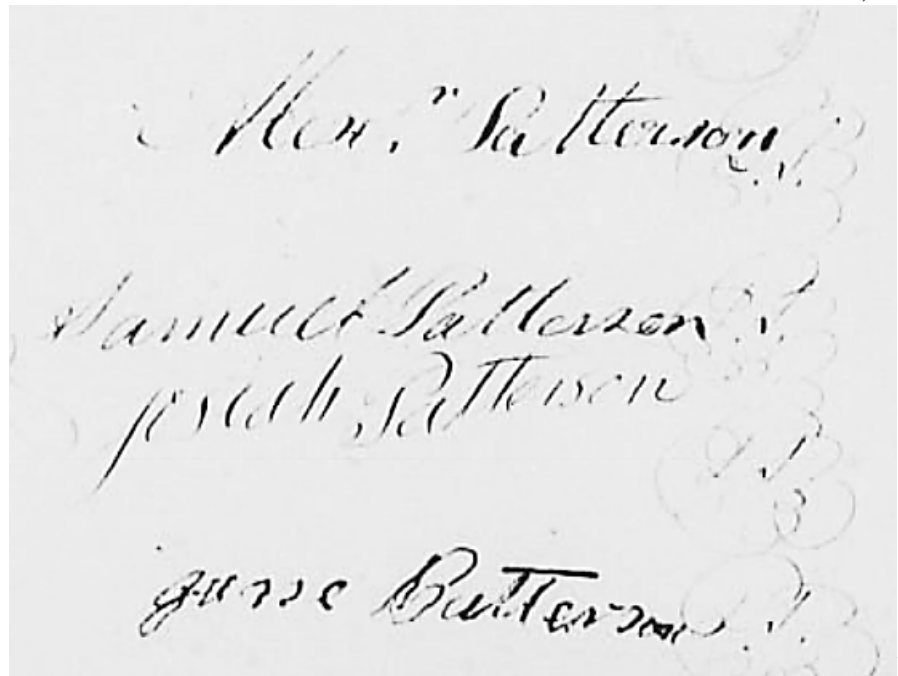 Alexr. Patterson L.S.
Samuel Patterson L.S.
Josiah Patterson
L.S.
Patterson L.S.